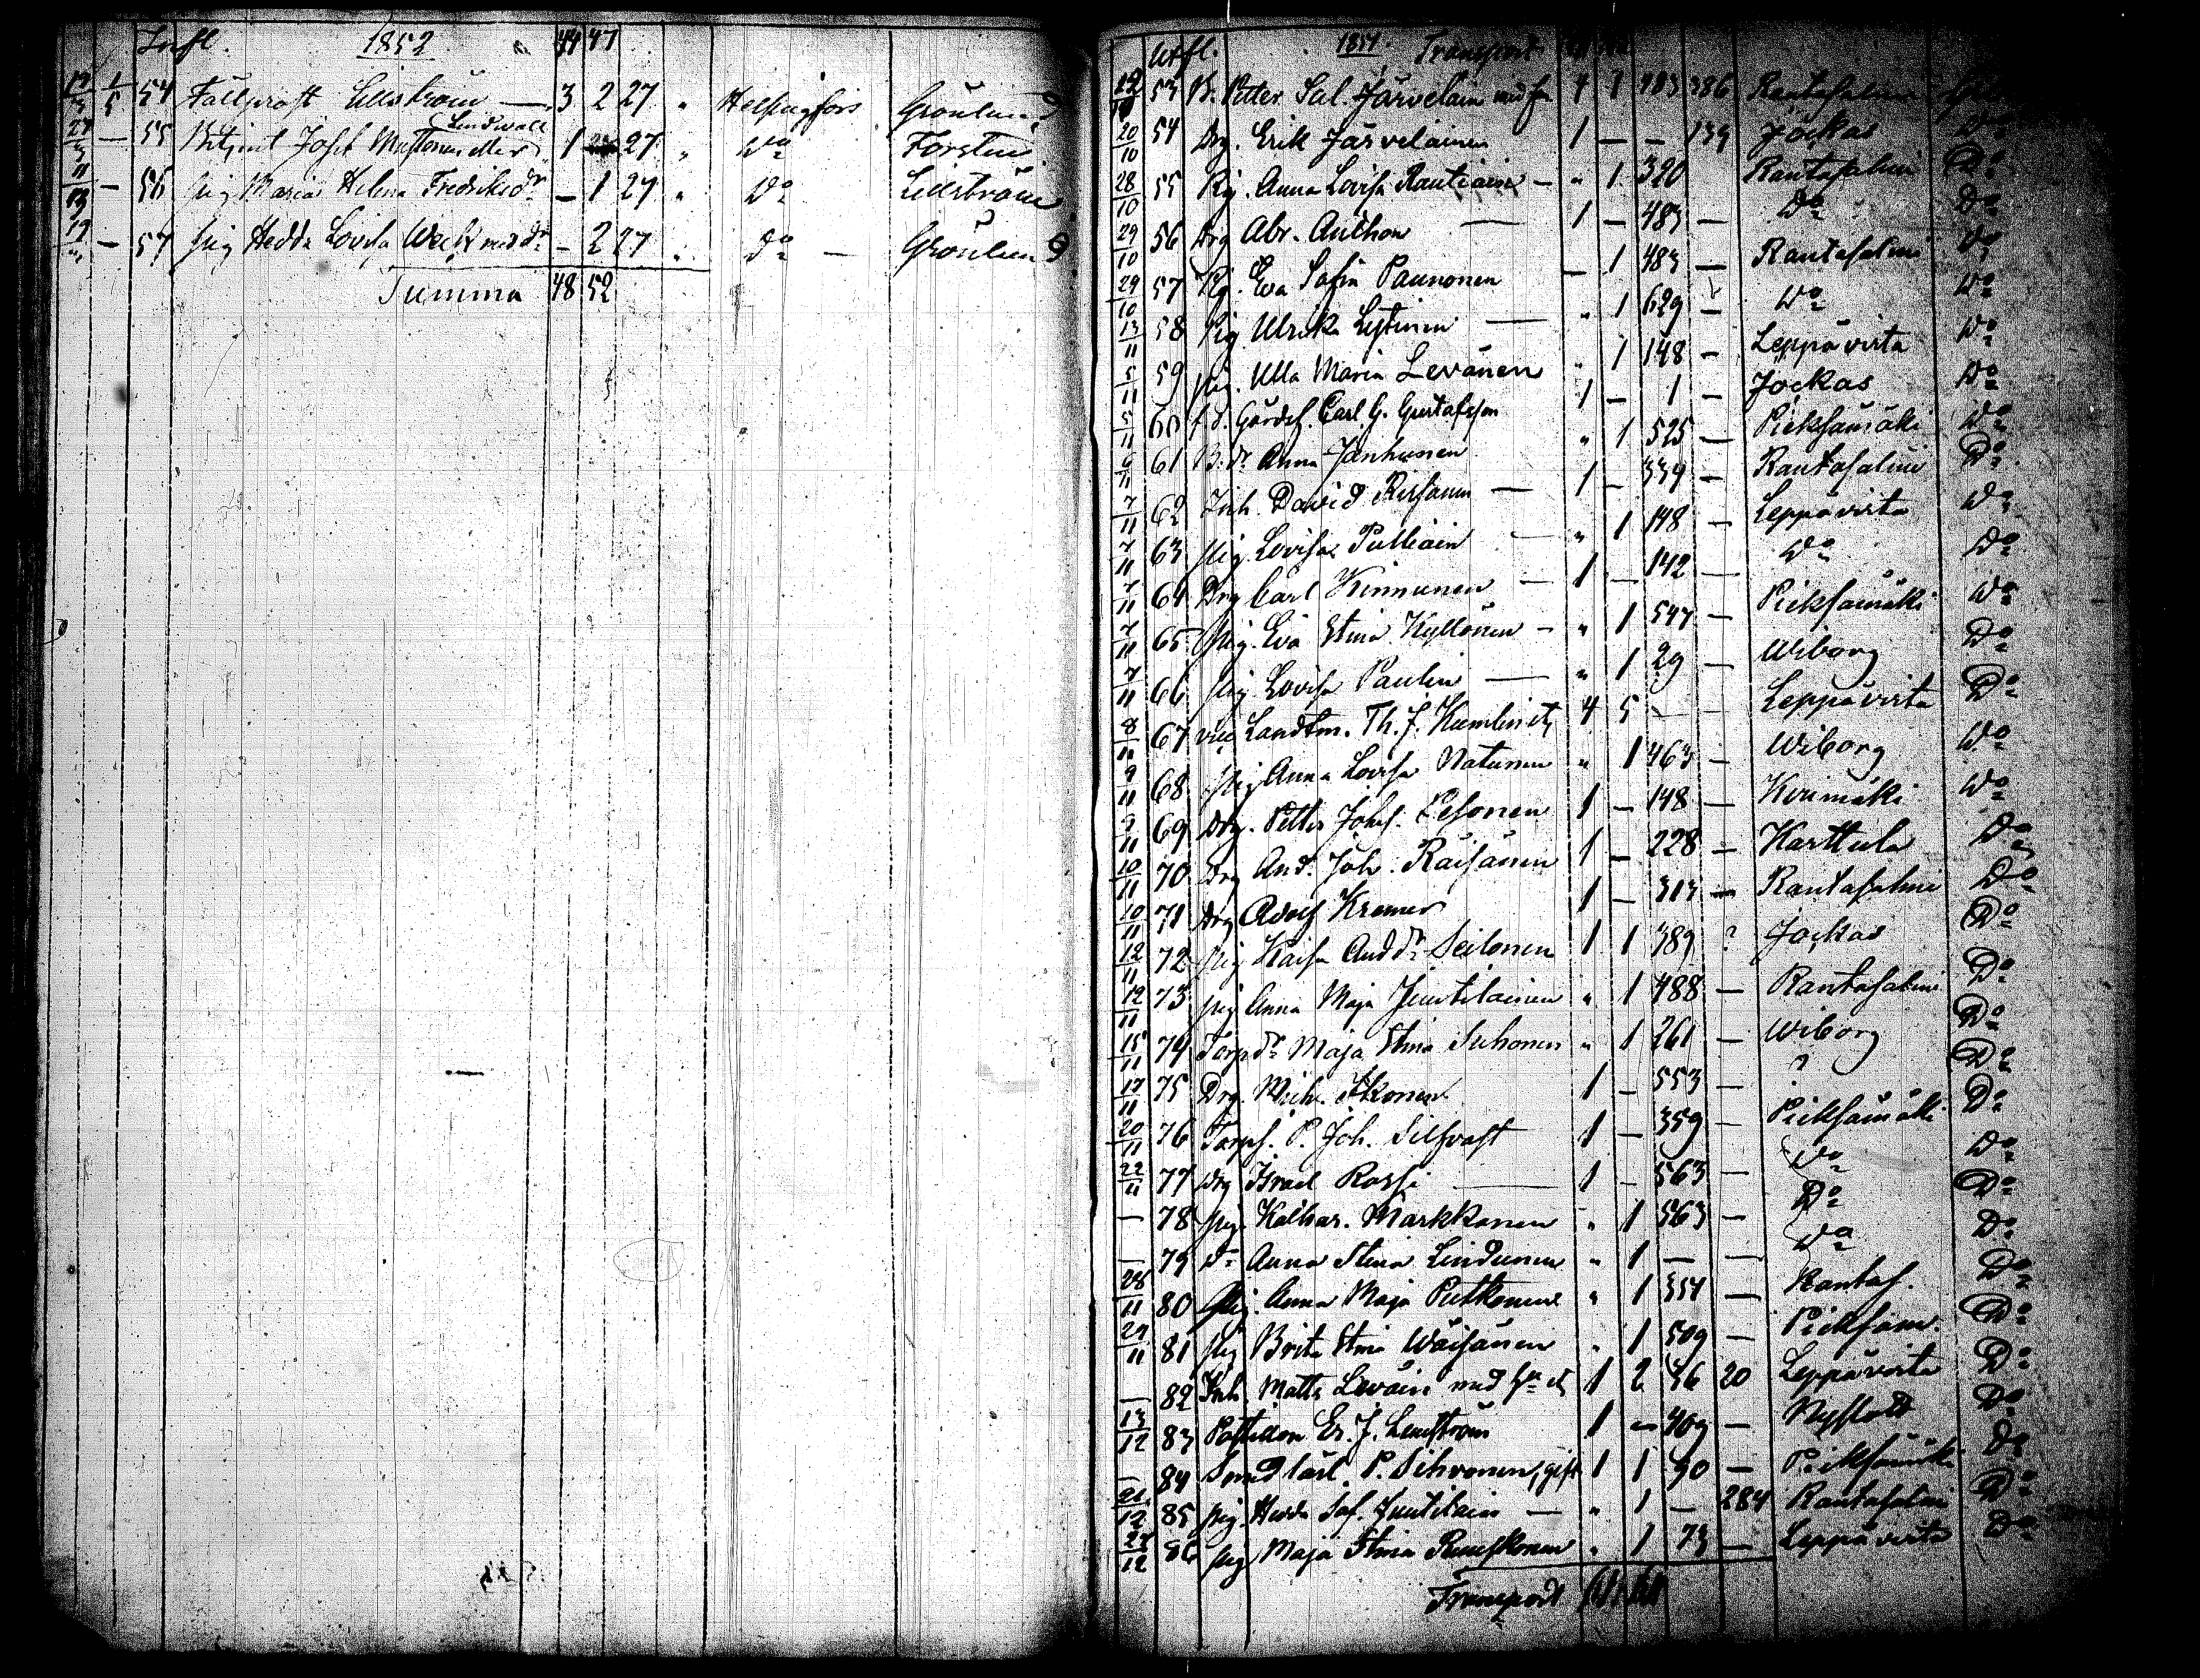 Infl. 1852 44 47
19/3 1/5 54 Fältprost Lillström — 3 2 27 " Helsingfors Grönlund
Lindwall
27/3 — 55 Josef Mustonen eller 1 27 " Do Forsten
— 56 Pig Maria Helena Fredriksdr — 1 27 " Do Lillström
19 — 57 Pig Hedda Lovisa med dr — 2 27 " Do — Grönlund
Summa 48 52
Utfl. 1851. Transport
12/10 53 B. Petter Sal. Järveläin med 4 1 483 386 Rantasalmi
20/10 54 Drg. Erik Järveläinen 1 — — 139 Jockas Do
28/10 55 Pig. Anna Lovisa Rautiain — " 1 320 Rantasalmi Do
29/10 56 Drg Abr. Auchon — 1 — 483 — Do Do
29/10 57 Pig. Eva Sofia Paunonen — 1 483 — Rantasalmi Do
13/11 58 Pig. Ulrika Lyytinen — " 1 629 — Do Do
5/11 59 Pig. Ulla Maria Levänen " 1 148 — Leppävirta Do
5/11 60 f.d. Gårdsf. Carl G. Gustafsson 1 — 1 — Jockas Do
6/11 61 B. dr Anna Janhunen " 1 525 — Pieksämäki Do
7/11 62 Inh. David Rissanen — 1 — 339 — Rantasalmi Do
7/11 63 Pig. Lovisa Pulliain — " 1 148 — Leppävirta Do
7/11 64 Drg Carl Kinnunen — 1 — 142 — Do Do
7/11 65 Pig. Eva Stina Kyllönen — " 1 547 — Pieksämäki Do
7/11 66 Pig Lovisa Paulin — " 1 29 — Wiborg Do
8/11 67 vice Landtm. Th. J. Kumlin etc 4 5 — — Leppävirta Do
9/11 68 Pig Anna Lovisa Natunen " 1 463 — Wiborg Do
9/11 69 Drg. Petter Johs. Pesonen 1 — 148 — Do
10/11 70 Drg And. Joh. Räisänen 1 — 228 — Karttula Do
10/11 71 Drg Adolf Kremer 1 — 313 — Rantasalmi Do
12/11 72 Pig Kaisa And dr Seilonen 1 1 389 ? Jockas Do
12/11 73 Pig Anna Maja Juutilainen " 1 488 — Rantasalmi Do
15/11 74 Torp dr Maja Stina Suhonen " 1 261 — Wiborg Do
17/11 75 Drg. Mich. Ikonen 1 — 553 — ? Do
20/11 76 Torps. P. Joh. Silfvast 1 — 359 — Pieksämäki Do
22/11 77 Drg Israel Rossi — 1 — 563 — Do Do
— 78 Pig. Kathar. Markkanen " 1 563 — Do Do
— 79 Do Anna Stina Lindunen " 1 — — Do Do
28/11 80 Pig. Anna Maja Putkonen " 1 351 — Rantas. Do
29/11 81 Pig Brita Stina Wäisänen " 1 509 — Pieksäm. Do
— 82 Inh. Matts Leväin med Hu etc 1 2 36 20 Leppävirta Do
13/12 83 Postillon Er. J. Lindström 1 — 409 — Nyslott Do
— 84 Smed Carl P. Sihvonen, gift 1 1 90 — Pieksämäki Do
21/12 85 Pig. Hedda Sof. Juutilain — " 1 — 284 Rantasalmi Do
28/12 86 Pig Maja Stina Ruuskonen " 1 73 — Leppävirta Do
Transport